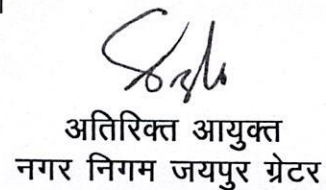 अतिरिक्त आयुक्त
नगर निगम जयपुर ग्रेटर